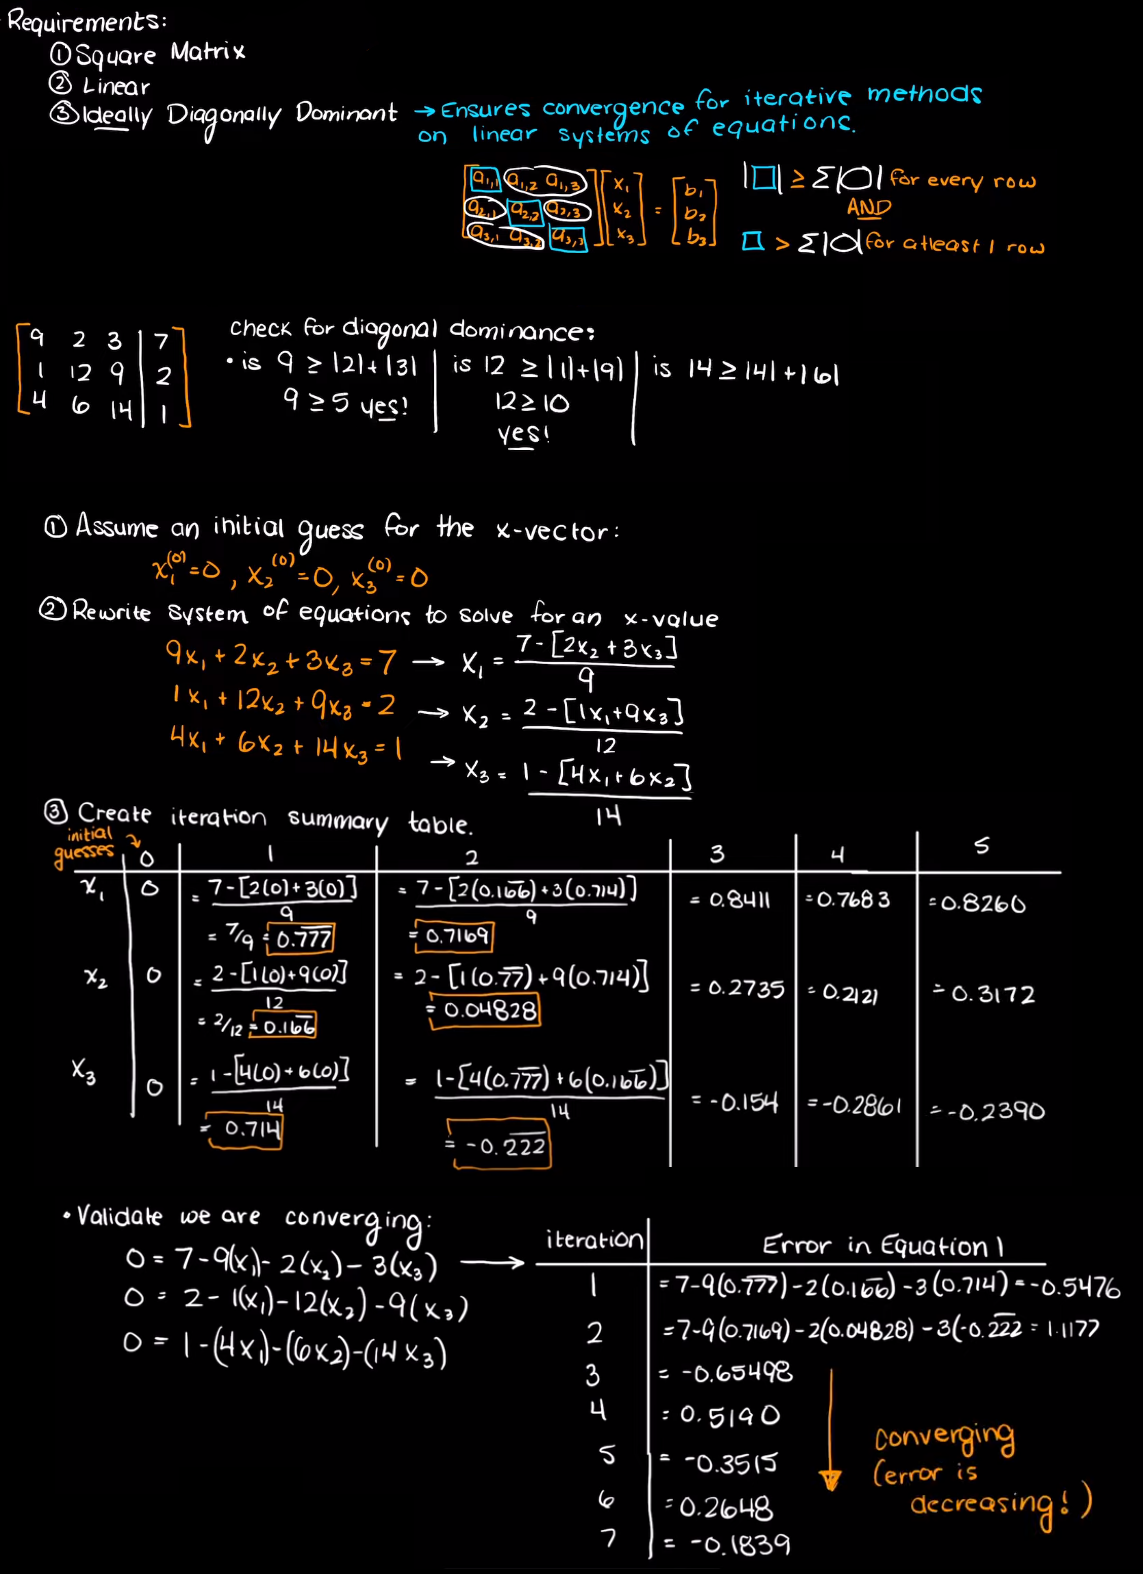 Requirements:
① Square Matrix
② Linear
③ Ideally Diagonally Dominant → Ensures convergence for iterative methods
on linear systems of equations.
[a1,1 a1,2 a1,3] [x1] [b1] |□| ≥ Σ|O| for every row
[a2,1 a2,2 a2,3] [x2] = [b2] AND
[a3,1 a3,2 a3,3] [x3] [b3] □ > Σ|O| for atleast 1 row
[9 2 3 | 7]
[1 12 9 | 2]
[4 6 14 | 1]
check for diagonal dominance:
• is 9 ≥ |2|+|3| | is 12 ≥ |1|+|9| | is 14 ≥ |4|+|6|
9 ≥ 5 yes! | 12 ≥ 10
yes!
① Assume an initial guess for the x-vector:
x1^(0)=0, x2^(0)=0, x3^(0)=0
② Rewrite system of equations to solve for an x-value
9x1 + 2x2 + 3x3 = 7 → x1 = 7-[2x2+3x3] / 9
1x1 + 12x2 + 9x3 = 2 → x2 = 2-[1x1+9x3] / 12
4x1 + 6x2 + 14x3 = 1 → x3 = 1-[4x1+6x2] / 14
③ Create iteration summary table.
initial
guesses 0 1 2 3 4 5
x1 0 = 7-[2(0)+3(0)] / 9 = 7-[2(0.166)+3(0.714)] / 9 = 0.8411 = 0.7683 = 0.8260
= 7/9 = 0.777 = 0.7169
x2 0 = 2-[1(0)+9(0)] / 12 = 2-[1(0.77)+9(0.714)] = 0.2735 = 0.2121 = 0.3172
= 2/12 = 0.166 = 0.04828
x3 0 = 1-[4(0)+6(0)] / 14 = 1-[4(0.777)+6(0.166)] / 14 = -0.154 = -0.2861 = -0.2390
= 0.714 = -0.222
• Validate we are converging:
0 = 7-9(x1)-2(x2)-3(x3) →
0 = 2-1(x1)-12(x2)-9(x3)
0 = 1-(4x1)-(6x2)-(14x3)
iteration Error in Equation 1
1 = 7-9(0.777)-2(0.166)-3(0.714) = -0.5476
2 = 7-9(0.7169)-2(0.04828)-3(-0.222 = 1.1177
3 = -0.65498
4 = 0.5190
5 = -0.3515
6 = 0.2648
7 = -0.1839
converging
(error is
decreasing!)